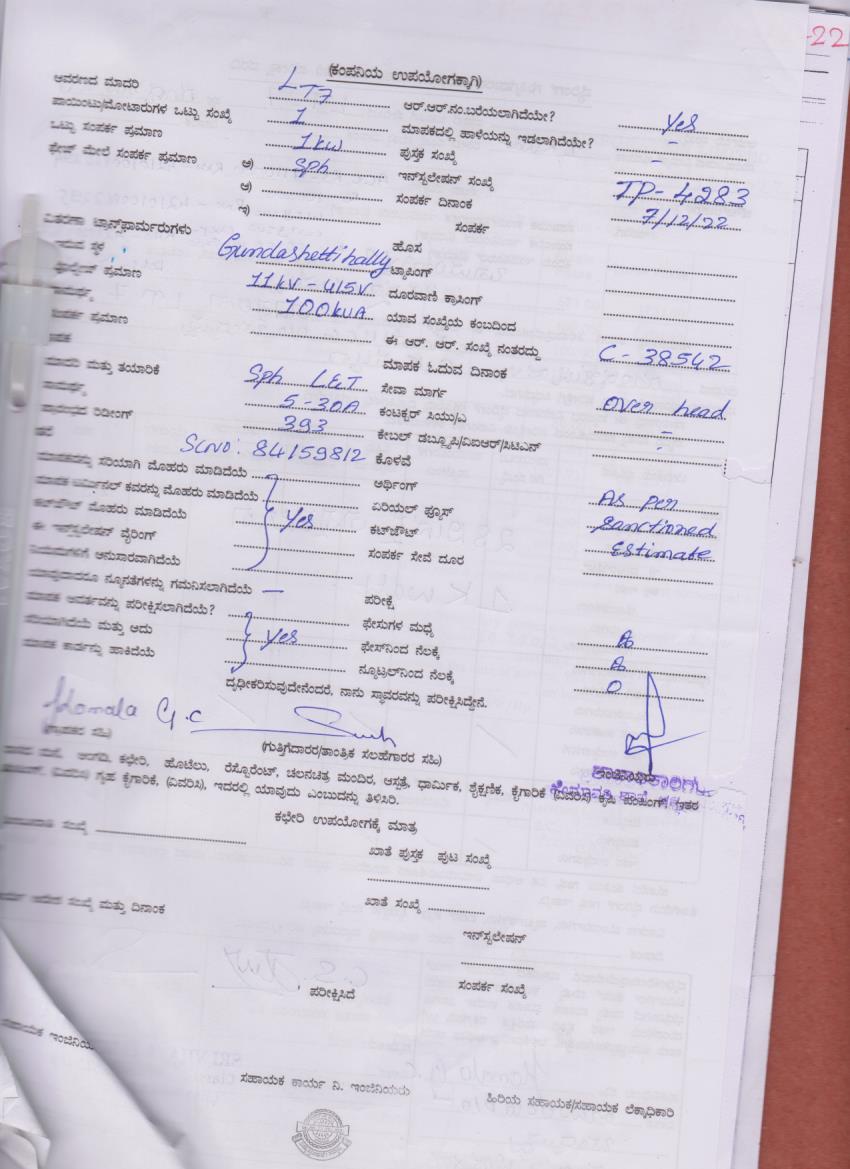 -22
(ಕಂಪನಿಯ ಉಪಯೋಗಕ್ಕಾಗಿ)
ಆವರಣದ ಮಾದರಿ LT7 ಆರ್.ಆರ್.ನಂ.ಬರೆಯಲಾಗಿದೆಯೇ? yes
ಪಾಯಿಂಟು/ಮೋಟಾರುಗಳ ಒಟ್ಟು ಸಂಖ್ಯೆ 1 ಮಾಪಕದಲ್ಲಿ ಹಾಳೆಯನ್ನು ಇಡಲಾಗಿದೆಯೇ? -
ಒಟ್ಟು ಸಂಪರ್ಕ ಪ್ರಮಾಣ 1kw ಪುಸ್ತಕ ಸಂಖ್ಯೆ -
ಫೇಸ್ ಮೇಲೆ ಸಂಪರ್ಕ ಪ್ರಮಾಣ ಅ) Sph ಇನ್‌ಸ್ಟಲೇಷನ್ ಸಂಖ್ಯೆ TP-4283
ಆ) ಸಂಪರ್ಕ ದಿನಾಂಕ 7/12/22
ಇ) ಸಂಪರ್ಕ
ವಿತರಣಾ ಟ್ರಾನ್ಸ್‌ಫಾರ್ಮರುಗಳು ಹೊಸ
ಸ್ಥಳ Gundashettihally ಟ್ಯಾಪಿಂಗ್
ಪ್ರಮಾಣ 11kV-415V ದೂರವಾಣಿ ಕ್ರಾಸಿಂಗ್
100kVA ಯಾವ ಸಂಖ್ಯೆಯ ಕಂಬದಿಂದ
ಪ್ರಮಾಣ ಈ ಆರ್. ಆರ್. ಸಂಖ್ಯೆ ನಂತರದ್ದು C-38542
ಮಾಪಕ ಓದುವ ದಿನಾಂಕ
ಮಾದರಿ ಮತ್ತು ತಯಾರಿಕೆ Sph L&T ಸೇವಾ ಮಾರ್ಗ Over head
5-30A ಕಂಟಕ್ಟರ್ ಸಿಯು/ಎ -
ರೀಡಿಂಗ್ 393 ಕೇಬಲ್ ಡಬ್ಲ್ಯೂಪಿ/ವಿಐಆರ್/ಸಿಟಿಎನ್ -
SLNO: 84159812 ಕೊಳವೆ
ಮಾಪಕವನ್ನು ಸರಿಯಾಗಿ ಮೊಹರು ಮಾಡಿದೆಯೆ ಅರ್ಥಿಂಗ್ As per
ಮಾಪಕ ಟರ್ಮಿನಲ್ ಕವರನ್ನು ಮೊಹರು ಮಾಡಿದೆಯೆ ಏರಿಯಲ್ ಫ್ಯೂಸ್ sanctioned
ಕಟ್‌ಔಟ್ ಮೊಹರು ಮಾಡಿದೆಯೆ yes ಕಟ್‌ಔಟ್ Estimate
ಈ ಇನ್‌ಸ್ಟಲೇಷನ್ ವೈರಿಂಗ್ ಸಂಪರ್ಕ ಸೇವೆ ದೂರ
ನಿಯಮಗಳಿಗೆ ಅನುಸಾರವಾಗಿದೆಯೆ
ಯಾವುದಾದರೂ ನ್ಯೂನತೆಗಳನ್ನು ಗಮನಿಸಲಾಗಿದೆಯೆ — ಪರೀಕ್ಷೆ
ಮಾಪಕ ಆವರ್ತವನ್ನು ಪರೀಕ್ಷಿಸಲಾಗಿದೆಯೆ? ಫೇಸುಗಳ ಮಧ್ಯೆ
ಸರಿಯಾಗಿದೆಯೆ ಮತ್ತು ಅದು yes ಫೇಸ್‌ನಿಂದ ನೆಲಕ್ಕೆ
ಮಾಪಕ ಕಾರ್ಡನ್ನು ಹಾಕಿದೆಯೆ ನ್ಯೂಟ್ರಲ್‌ನಿಂದ ನೆಲಕ್ಕೆ 0
ದೃಢೀಕರಿಸುವುದೇನೆಂದರೆ, ನಾನು ಸ್ಥಾವರವನ್ನು ಪರೀಕ್ಷಿಸಿದ್ದೇನೆ.
G.C
(ಗ್ರಾಹಕರ ಸಹಿ) (ಗುತ್ತಿಗೆದಾರರ/ತಾಂತ್ರಿಕ ಸಲಹೆಗಾರರ ಸಹಿ)
ಮನೆ, ಅಂಗಡಿ, ಕಛೇರಿ, ಹೊಟೆಲು, ರೆಸ್ಟೊರೆಂಟ್, ಚಲನಚಿತ್ರ ಮಂದಿರ, ಆಸ್ಪತ್ರೆ, ಧಾರ್ಮಿಕ, ಶೈಕ್ಷಣಿಕ, ಕೈಗಾರಿಕೆ (ವಿವರಿಸಿ) ಕೃಷಿ ಪಂಪಿಂಗ್, ಇತರ
(ವಿವರಿಸಿ) ಗೃಹ ಕೈಗಾರಿಕೆ, (ವಿವರಿಸಿ), ಇದರಲ್ಲಿ ಯಾವುದು ಎಂಬುದನ್ನು ತಿಳಿಸಿರಿ.
ಕಛೇರಿ ಉಪಯೋಗಕ್ಕೆ ಮಾತ್ರ
ಸಂಖ್ಯೆ ಖಾತೆ ಪುಸ್ತಕ ಪುಟ ಸಂಖ್ಯೆ
ಖಾತೆ ಸಂಖ್ಯೆ
ಸಂಖ್ಯೆ ಮತ್ತು ದಿನಾಂಕ
ಇನ್‌ಸ್ಟಲೇಷನ್
, ಪರೀಕ್ಷಿಸಿದೆ ಸಂಪರ್ಕ ಸಂಖ್ಯೆ
ಸಹಾಯಕ ಕಾರ್ಯ ನಿ. ಇಂಜಿನಿಯರು ಹಿರಿಯ ಸಹಾಯಕ/ಸಹಾಯಕ ಲೆಕ್ಕಾಧಿಕಾರಿ